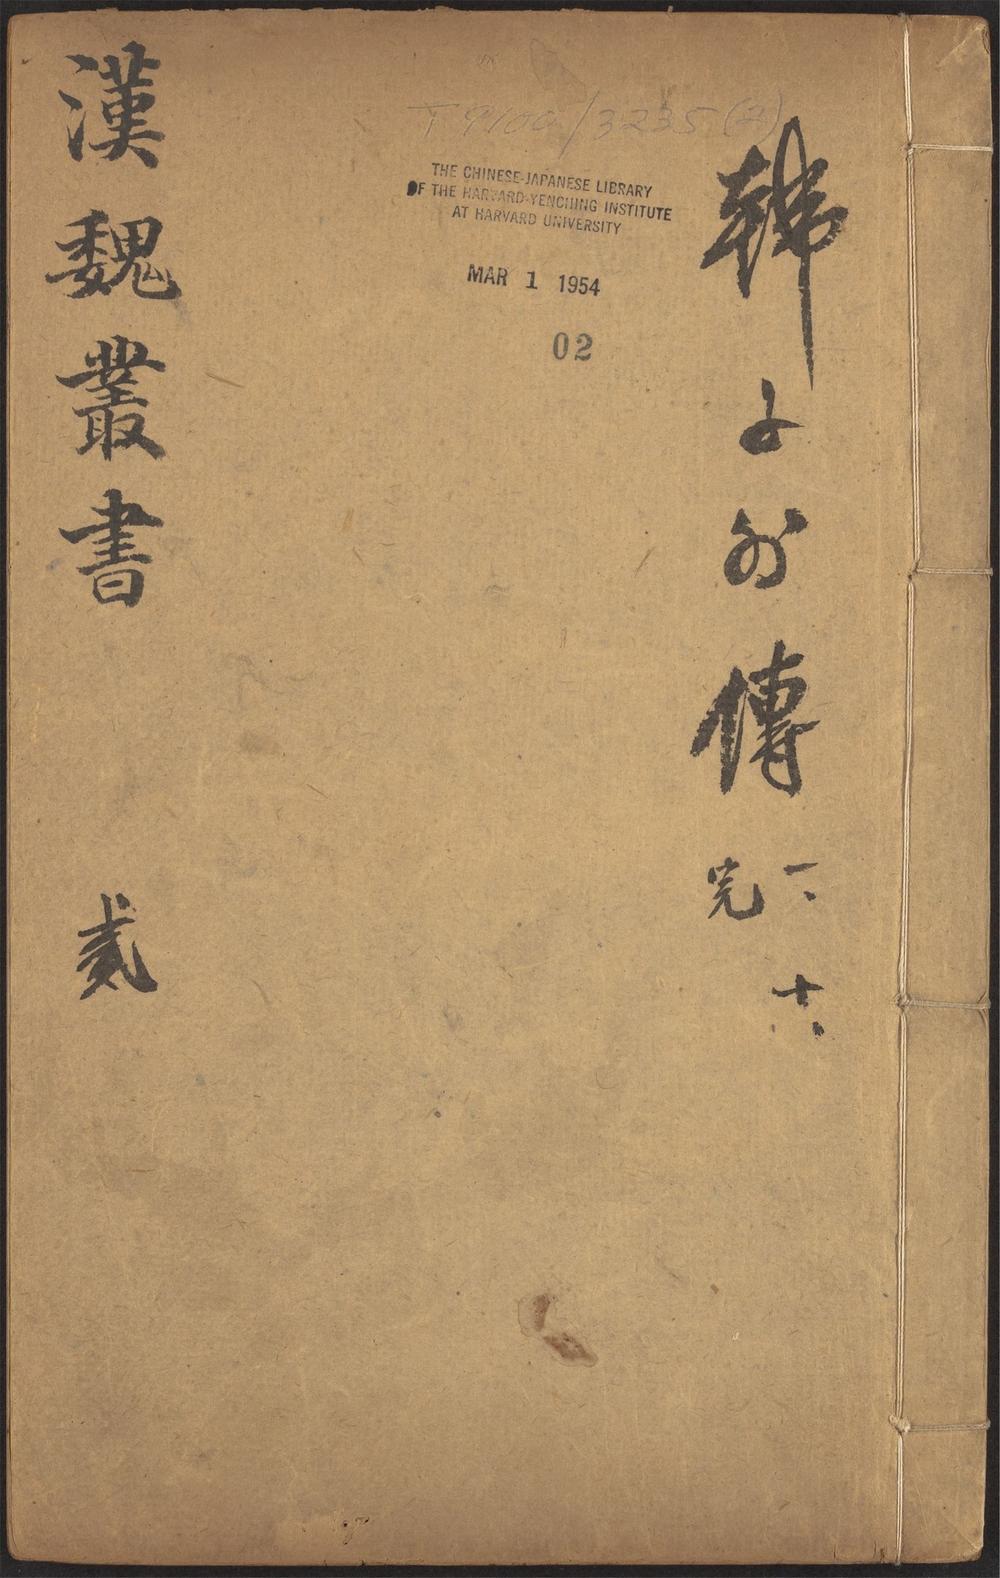 韓詩外傳
一
十
完
T 9100/3235(2)
THE CHINESE-JAPANESE LIBRARY
OF THE HARVARD-YENCHING INSTITUTE
AT HARVARD UNIVERSITY
MAR 1 1954
02
漢魏叢書 貳